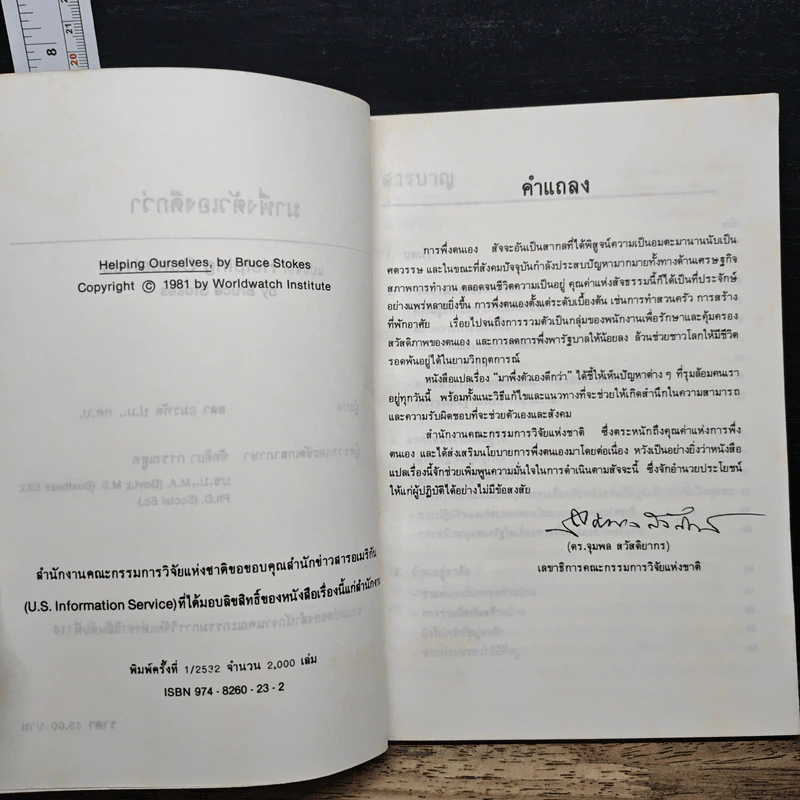 Helping Ourselves, by Bruce Stokes
Copyright © 1981 by Worldwatch Institute
สำนักงานคณะกรรมการวิจัยแห่งชาติขอขอบคุณสำนักข่าวสารอเมริกัน
(U.S. Information Service) ที่ได้มอบลิขสิทธิ์ของหนังสือเรื่องนี้แก่สำนักงาน
พิมพ์ครั้งที่ 1/2532 จำนวน 2,000 เล่ม
ISBN 974 - 8260 - 23 - 2
คำแถลง
การพึ่งตนเอง สัจจะอันเป็นสากลที่ได้พิสูจน์ความเป็นอมตะมานานนับเป็น
ศตวรรษ และในขณะที่สังคมปัจจุบันกำลังประสบปัญหามากมายทั้งทางด้านเศรษฐกิจ
สภาพการทำงาน ตลอดจนชีวิตความเป็นอยู่ คุณค่าแห่งสัจธรรมนี้ก็ได้เป็นที่ประจักษ์
อย่างแพร่หลายยิ่งขึ้น การพึ่งตนเองตั้งแต่ระดับเบื้องต้น เช่นการทำสวนครัว การสร้าง
ที่พักอาศัย เรื่อยไปจนถึงการรวมตัวเป็นกลุ่มของพนักงานเพื่อรักษาและคุ้มครอง
สวัสดิภาพของตนเอง และการลดการพึ่งพารัฐบาลให้น้อยลง ล้วนช่วยชาวโลกให้มีชีวิต
รอดพ้นอยู่ได้ในยามวิกฤตการณ์
หนังสือแปลเรื่อง "มาพึ่งตัวเองดีกว่า" ได้ชี้ให้เห็นปัญหาต่าง ๆ ที่รุมล้อมคนเรา
อยู่ทุกวันนี้ พร้อมทั้งแนะวิธีแก้ไขและแนวทางที่จะช่วยให้เกิดสำนึกในความสามารถ
และความรับผิดชอบที่จะช่วยตัวเองและสังคม
สำนักงานคณะกรรมการวิจัยแห่งชาติ ซึ่งตระหนักถึงคุณค่าแห่งการพึ่ง
ตนเอง และได้ส่งเสริมนโยบายการพึ่งตนเองมาโดยต่อเนื่อง หวังเป็นอย่างยิ่งว่าหนังสือ
แปลเรื่องนี้จักช่วยเพิ่มพูนความมั่นใจในการดำเนินตามสัจจะนี้ ซึ่งจักอำนวยประโยชน์
ให้แก่ผู้ปฏิบัติได้อย่างไม่มีข้อสงสัย
(ดร.จุมพล สวัสดิยากร)
เลขาธิการคณะกรรมการวิจัยแห่งชาติ
8
20
21